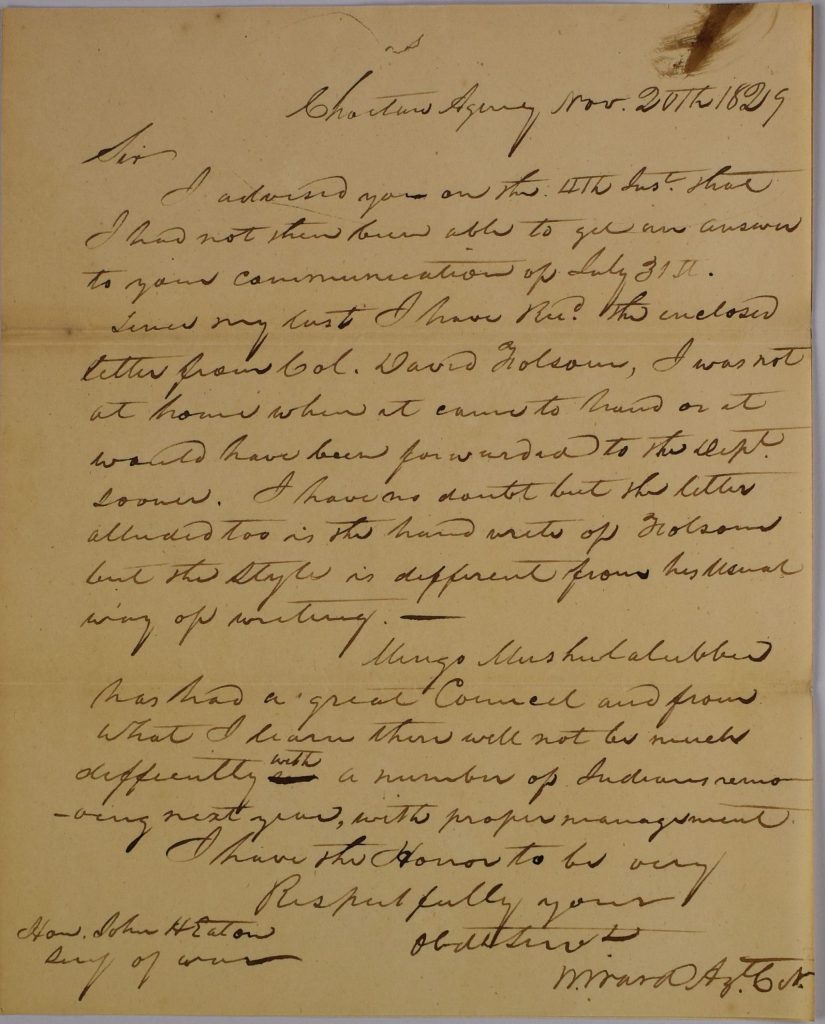 Choctaw Agency Nov. 20th 1829
Sir
I advised you on the 4th Inst. that
I had not then been able to get an answer
to your communication of July 31st.
Since my last I have Recd. the enclosed
letter from Col. David Folsom, I was not
at home when it came to hand or it
would have been forwarded to the Dept.
sooner. I have no doubt but the letter
alluded too is the hand write of Folsom
but the Style is different from his Usual
way of writing. —
Mingo Mushulatubbee
has had a great Council and from
what I learn there will not be much
difficulty with a number of Indians remo-
-ving next year, with proper management
I have the Honor to be very
Respectfully your
Obdt Servt
Hon. John H Eaton
Secy of War
W. Ward Agt. C N.